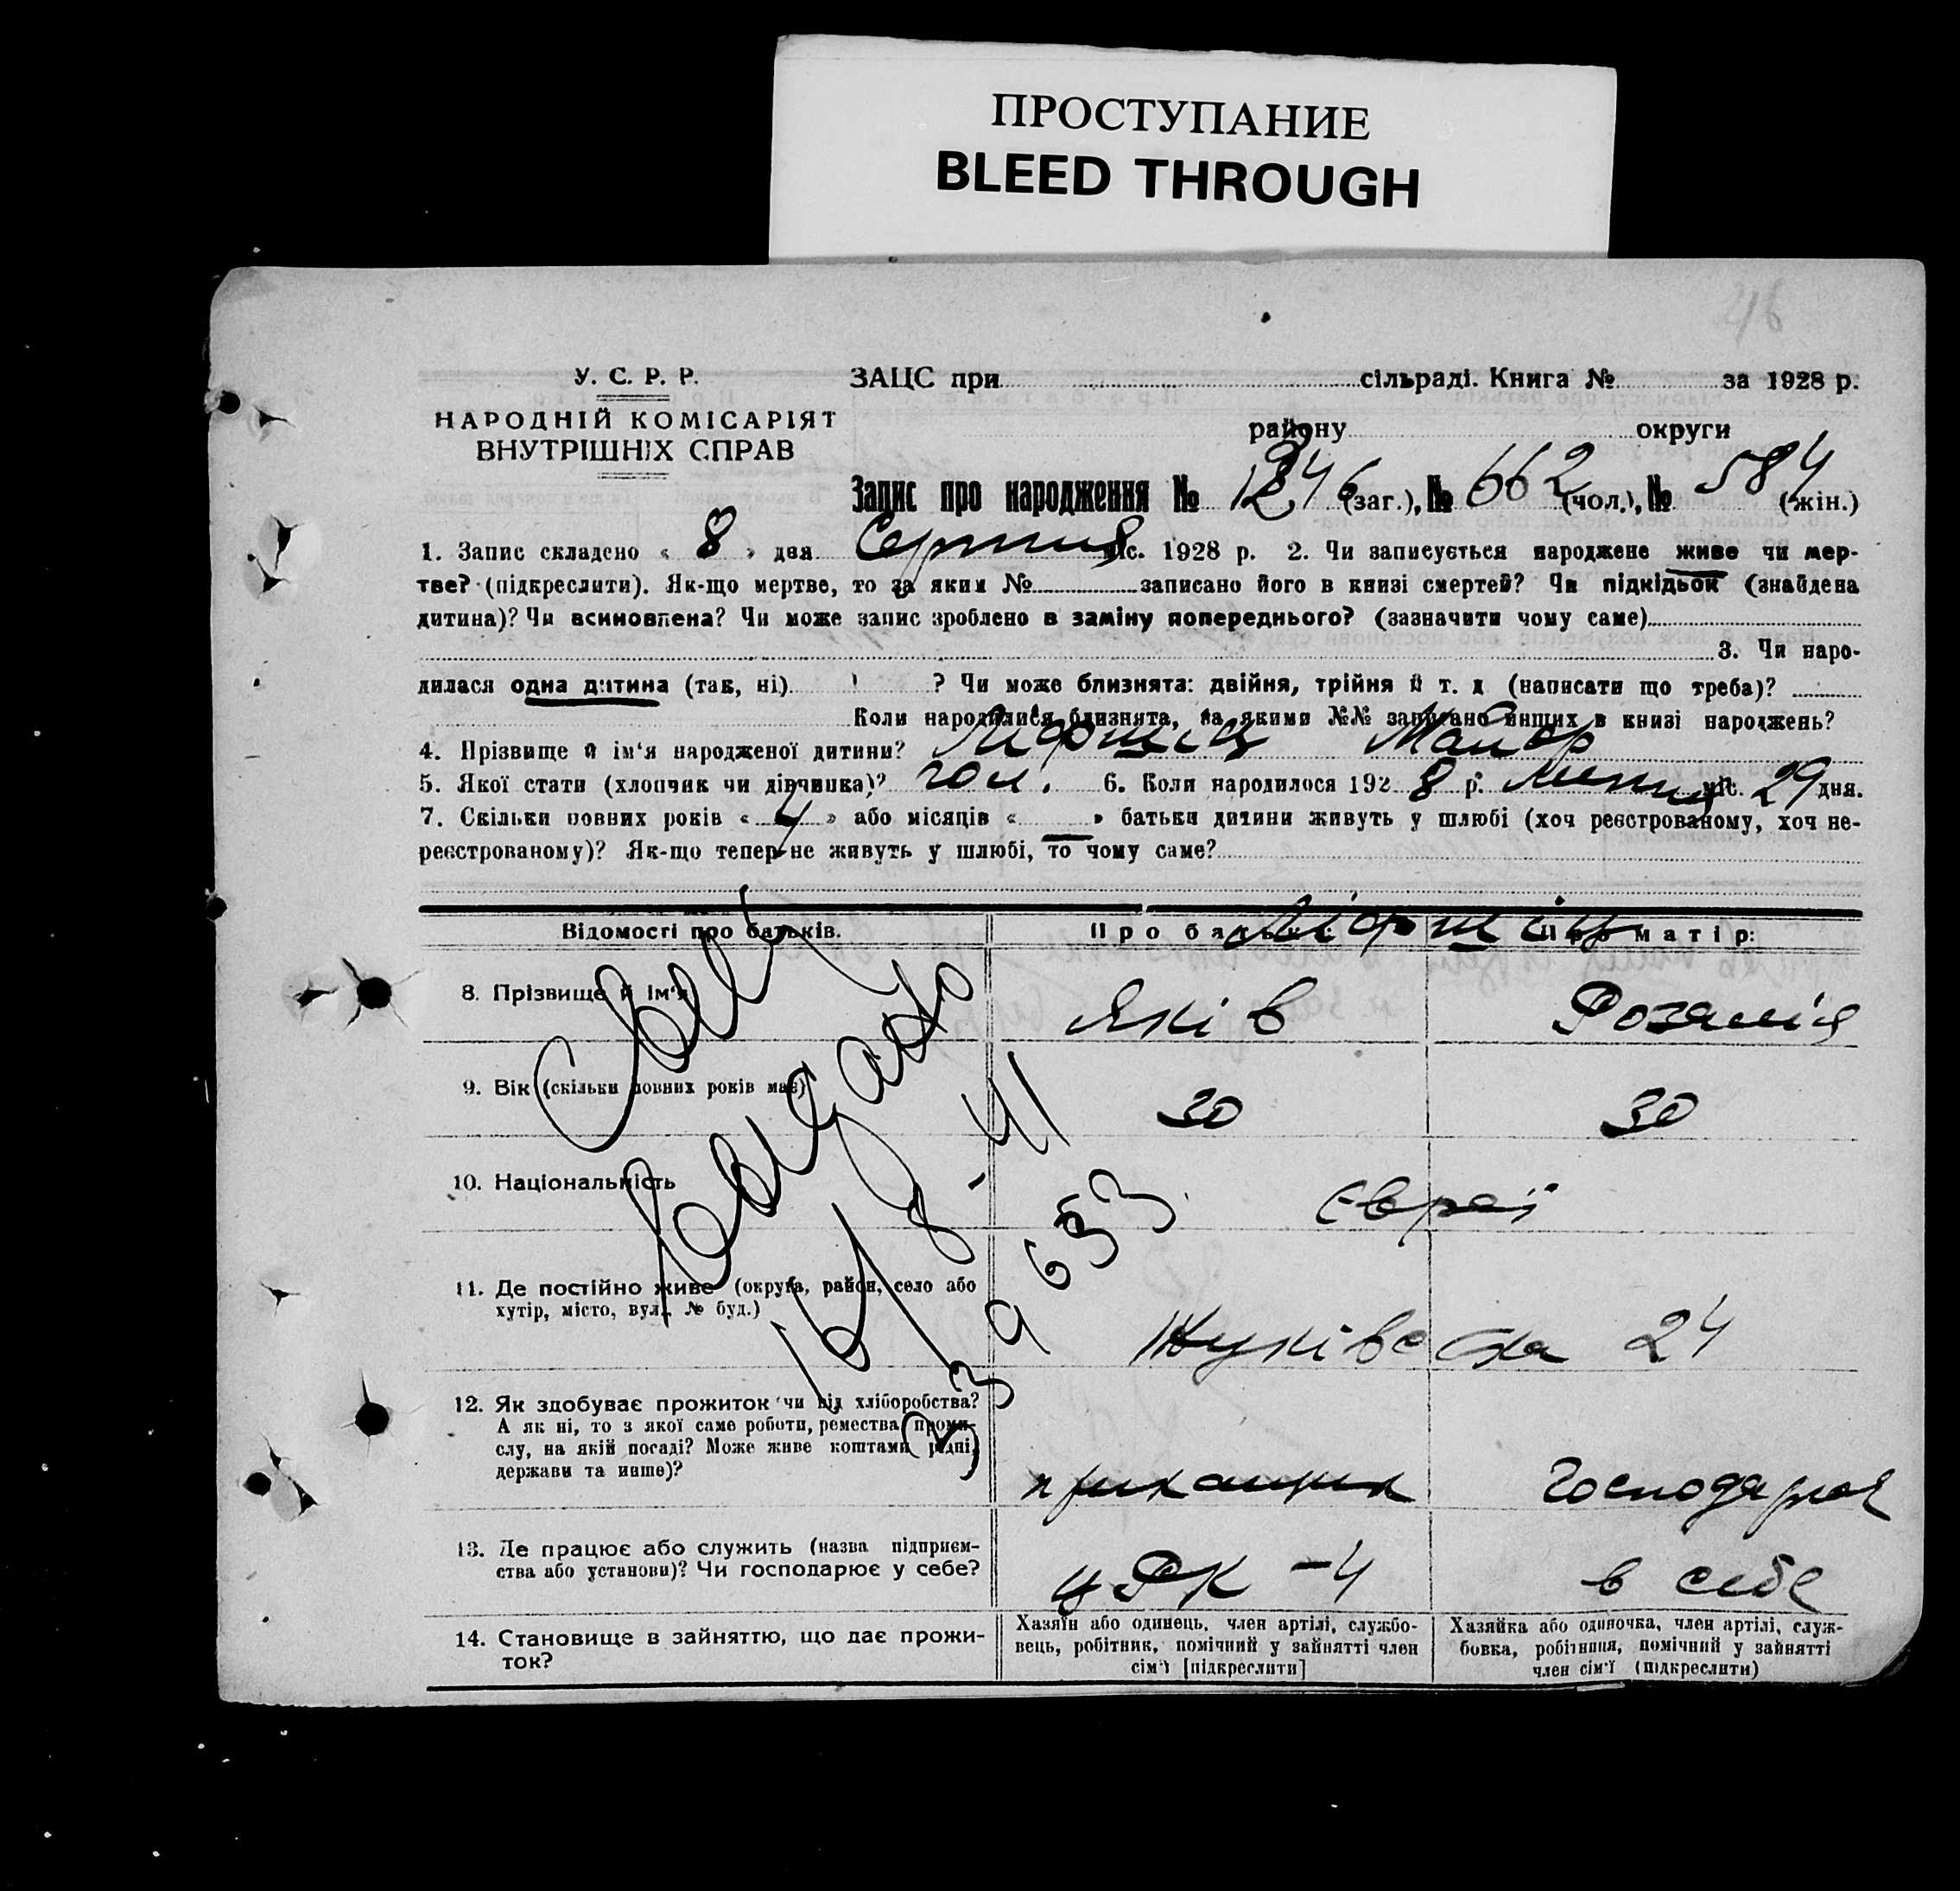 ПРОСТУПАНИЕ
BLEED THROUGH
46
У. С. Р. Р.
НАРОДНІЙ КОМІСАРІЯТ
ВНУТРІШНІХ СПРАВ
ЗАЦС при сільраді. Книга № за 1928 р.
району округи
Запис про народження № 1246 (заг.), № 662 (чол.), № 584 (жін.)
1. Запис складено « 8 » дня Серпня міс. 1928 р. 2. Чи записується народжене живе чи мер-
тве? (підкреслити). Як-що мертве, то за яким № записано його в книзі смертей? Чи підкідьок (знайдена
дитина)? Чи всиновлена? Чи може запис зроблено в заміну попереднього? (зазначити чому саме)
3. Чи наро-
дилася одна дитина (так, ні) ? Чи може близнята: двійня, трійня й т. д (написати що треба)?
Коли народилися близнята, за якими №№ записано инших в книзі народжень?
4. Прізвище й ім'я народженої дитини? Ліфшіц
5. Якої стати (хлопчик чи дівчинка)? чол. 6. Коли народилося 192 8 р. Липня міс. 29 дня.
7. Скільки повних років « 4 » або місяців « — » батьки дитини живуть у шлюбі (хоч реєстрованому, хоч не-
реєстрованому)? Як-що тепер не живуть у шлюбі, то чому саме?
Відомості про батьків. Про батька: Про матір:
Ліфшіц
8. Прізвище й ім'я Яків Розалія
9. Вік (скільки повних років має) 30 30
10. Національність Євреї
11. Де постійно живе (округа, район, село або
хутір, місто, вул. № буд.)
Жуківська 24
12. Як здобуває прожиток (чи від хліборобства?
А як ні, то з якої саме роботи, ремества, проми-
слу, на якій посаді? Може живе коштами рідні,
держави та инше)?
прикащик Господарює
13. Де працює або служить (назва підприєм-
ства або установи)? Чи господарює у себе?
ЦРК - 4 в себе
14. Становище в зайняттю, що дає прожи-
ток?
Хазяїн або одинець, член артілі, службо-
вець, робітник, помічний у зайнятті член
сім'ї [підкреслити]
Хазяйка або одиночка, член артілі, служ-
бовка, робітниця, помічний у зайнятті
член сім'ї (підкреслити)